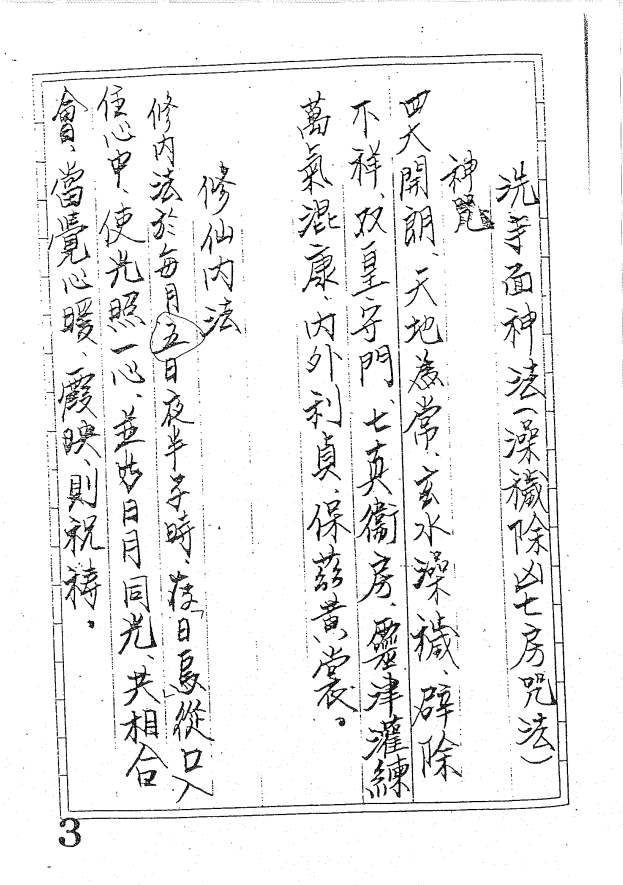 洗手面神法(澡穢除凶七房咒法)
神咒
四大開朗、天地為常、玄水澡穢、辟除
不祥、双皇守門、七真衞房、靈津灌練
萬氣混康、內外利貞、保茲黃裳。
修仙內法
修內法於每月五日夜半子時、存「日烏」從口入
住心中、使光照一心、並與日月同光、共相合
會、當覺心暖、霞映、則祝禱。
3